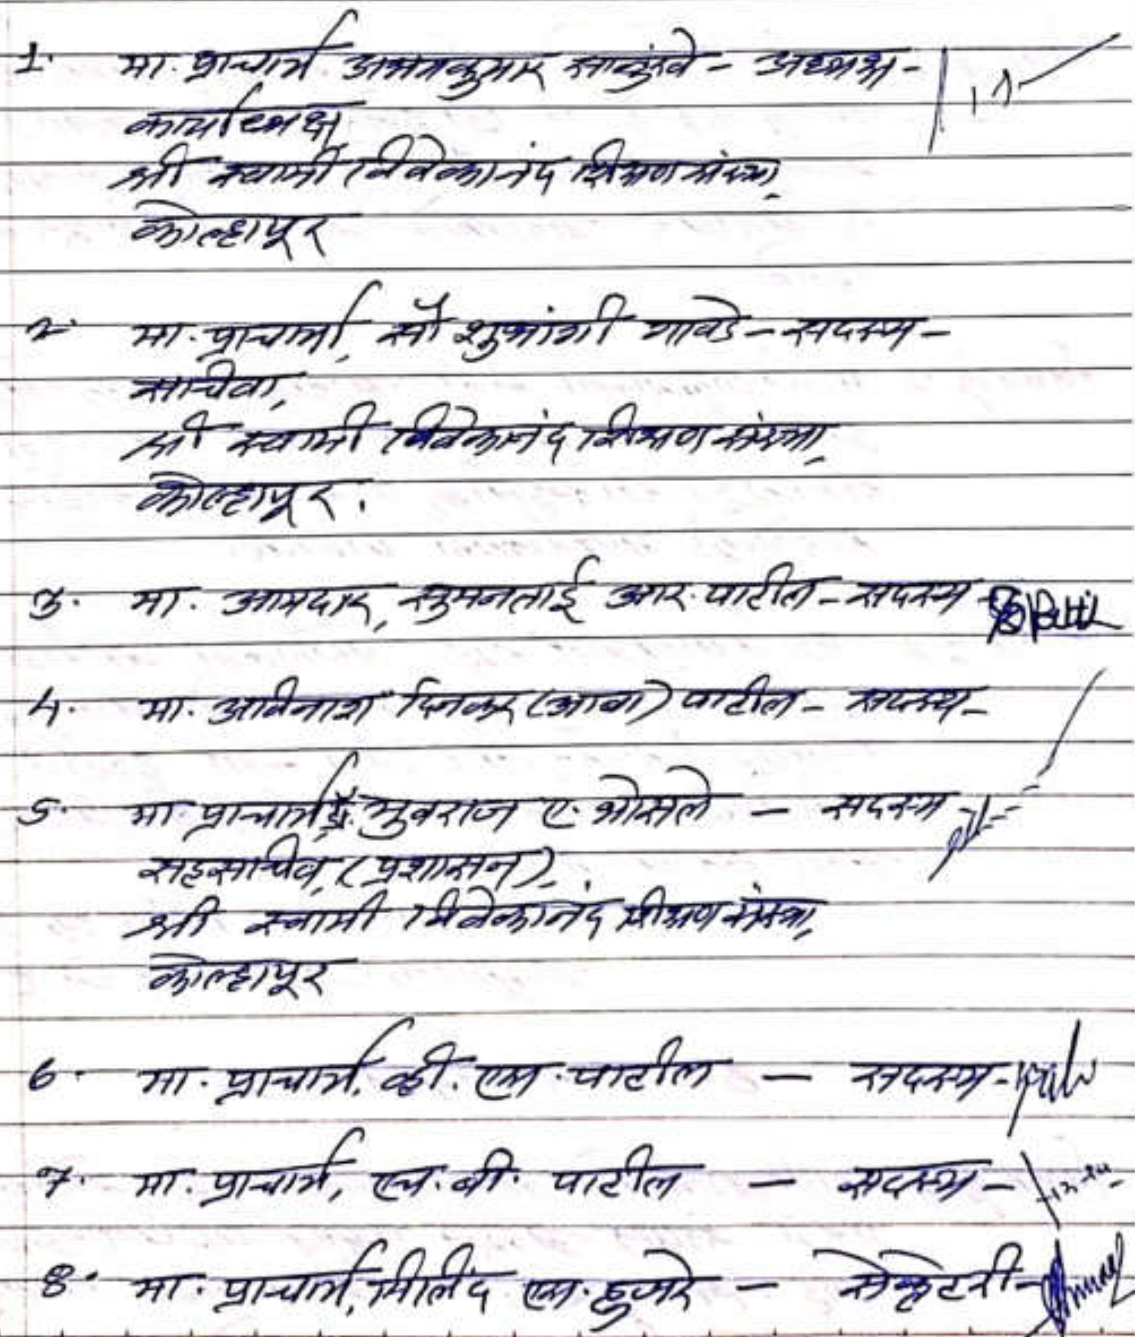 1. मा. प्राचार्य अभयकुमार साळुंखे - अध्यक्ष -
कार्याध्यक्ष
श्री स्वामी विवेकानंद शिक्षण संस्था,
कोल्हापूर
2. मा. प्राचार्या, सौ शुभांगी गावडे - सदस्य -
सचिवा,
श्री स्वामी विवेकानंद शिक्षण संस्था,
कोल्हापूर.
3. मा. आमदार, सुमनताई आर. पाटील - सदस्य -
4. मा. अविनाश दिनकर (आबा) पाटील - सदस्य -
5. मा. प्राचार्य डॉ. युवराज ए. भोसले - सदस्य -
सहसचिव, (प्रशासन),
श्री स्वामी विवेकानंद शिक्षण संस्था,
कोल्हापूर
6. मा. प्राचार्य, व्ही. एम. पाटील - सदस्य -
7. मा. प्राचार्य, एच. बी. पाटील - सदस्य -
8. मा. प्राचार्य, मिलींद एम. हुजरे - सेक्रेटरी -